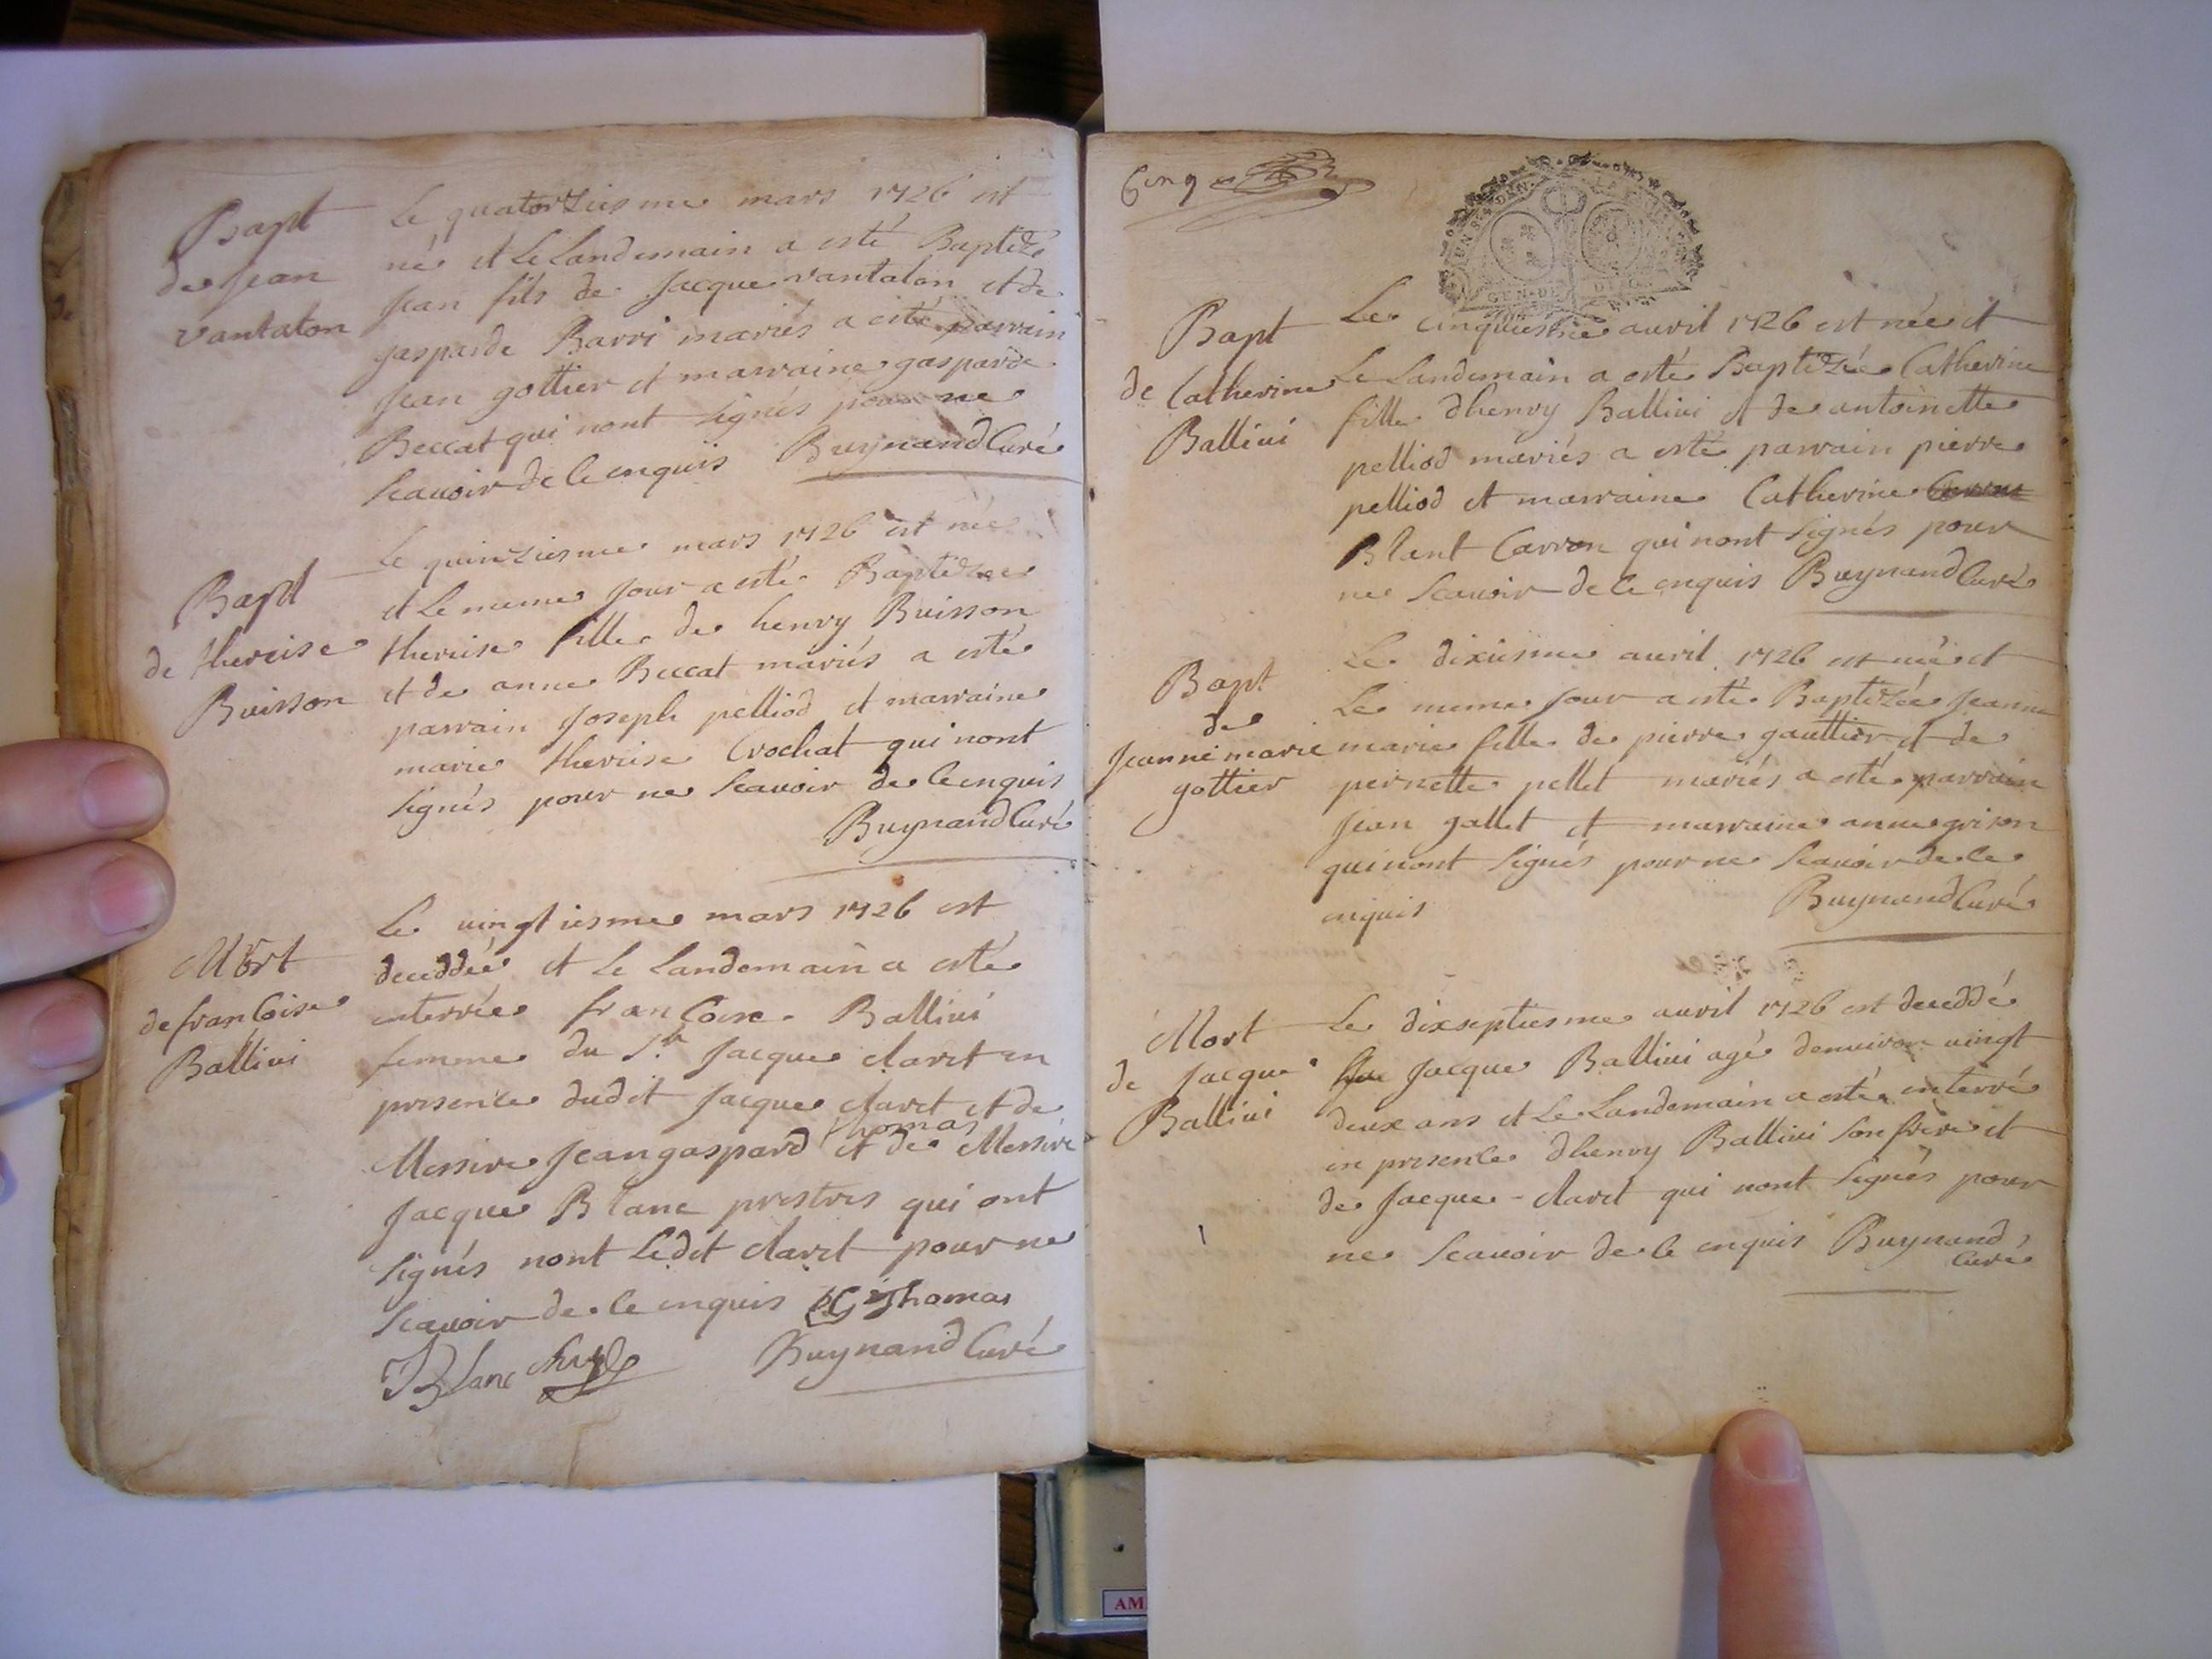 Bapt
de Jean
vantalon
Le quatorziesme mars 1726 est
né et Le Landemain a esté Baptizé
Jean fils de Jacque vantalon et de
gasparde Barri mariés a esté parrain
Jean gottier et marraine gasparde
Beccat qui nont signés pour ne
scavoir de ce enquis Buynand Curé
Bapt
de thereise
Buisson
Le quinziesme mars 1726 est née
et Le meme jour a esté Baptizée
thereise fille de henry Buisson
et de anne Beccat mariés a esté
parrain Joseph pelliod et marraine
marie thereise Crochat qui nont
signés pour ne scavoir de ce enquis
Buynand Curé
Mort
de francoise
Ballivi
Le vingtiesme mars 1726 est
deceddée et Le Landemain a esté
enterrée francoise Ballivi
femme du Sr Jacque claret en
presence dudit Jacque claret et de
Messire Jean gaspard thomas et de Messire
Jacque Blanc prestres qui ont
signés nont Ledit claret pour ne
scavoir de ce enquis JG Thomas
Blanc Buynand Curé
Cinq
GEN DE DIJON
Bapt
de Catherine
Ballivi
Le cinquiesme avril 1726 est née et
Le Landemain a esté Baptizée Catherine
fille dhenry Ballivi et de antoinette
pelliod mariés a esté parrain pierre
pelliod et marraine Catherine
Blant Carron qui nont signés pour
ne scavoir de ce enquis Buynand Curé
Bapt
de
Jeanne marie
gottier
Le dixiesme avril 1726 est née et
Le meme jour a esté Baptizée Jeanne
marie fille de pierre gauttier et de
pernette pellet mariés a esté parrain
Jean gallet et marraine anne grison
qui nont signés pour ne scavoir de ce
enquis Buynand Curé
Mort
de Jacque
Ballivi
Le dixseptiesme avril 1726 est deceddé
Jacque Ballivi agé denviron vingt
deux ans et Le Landemain a esté enterré
en presence dhenry Ballivi son frere et
de Jacque claret qui nont signés pour
ne scavoir de ce enquis Buynand
Curé
AM